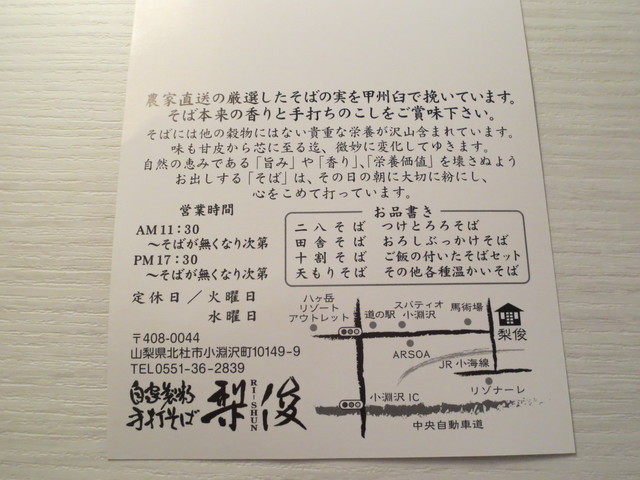 農家直送の厳選したそばの実を甲州臼で挽いています。
そば本来の香りと手打ちのこしをご賞味下さい。
そばには他の穀物にはない貴重な栄養が沢山含まれています。
味も甘皮から芯に至る迄、微妙に変化してゆきます。
自然の恵みである「旨み」や「香り」、「栄養価値」を壊さぬよう
お出しする「そば」は、その日の朝に大切に粉にし、
心をこめて打っています。
営業時間
AM11:30
～そばが無くなり次第
PM17:30
～そばが無くなり次第
定休日／火曜日
水曜日
お品書き
二八そば つけとろろそば
田舎そば おろしぶっかけそば
十割そば ご飯の付いたそばセット
天もりそば その他各種温かいそば
〒408-0044
山梨県北杜市小淵沢町10149-9
TEL0551-36-2839
自家製粉
手打そば
梨俊
RI-SHUN
八ヶ岳
リゾート
アウトレット
道の駅
スパティオ
小淵沢
馬術場
梨俊
ARSOA
JR小海線
リゾナーレ
小淵沢IC
中央自動車道